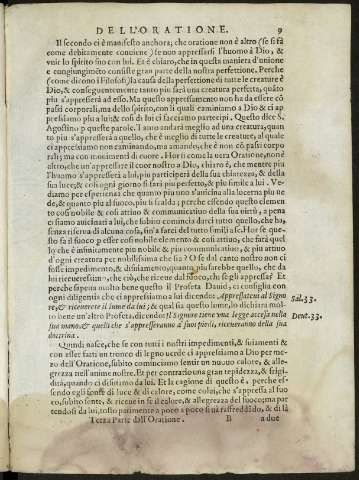 DELL'ORATIONE. 9
Il secondo ci è manifesto anchora; che oratione non è altro (se si fà
come debitamente conviene) se non appressarsi l'huomo à Dio, &
vnir lo spirito suo con lui. Et è chiaro, che in questa maniera d'vnione
e congiungimẽto consiste gran parte della nostra perfettione. Perche
(come dicono i Filosofi) la causa della perfettione di tutte le creature è
Dio, & conseguentemente tanto piu sarà vna creatura perfetta, quãto
piu s'appresserà ad esso. Ma questo appressamento non ha da essere cõ
passi corporali, ma dello spirito, con li quali caminiamo a Dio & ci ap
pressiamo piu a lui & cosi di lui ci facciamo partecipi. Questo dice S.
Agostino per queste parole. Tanto andarà meglio ad vna creatura, quan
to piu s'appresserà a quello, che è meglio di tutte le creature, al quale
ci appressiamo non caminando, ma amando, che è non cõ passi corpo
rali; ma con mouimenti di cuore. Hor se come la vera Oratione, non è
altro, che vn'appressare il cuor nostro a Dio, chiaro è, che mentre piu
l'huomo s'appresserà a lui, piu participerà della sua chiarezza, & della
sua luce, & cosi ogni giorno si farà piu perfetto, & piu simile a lui. Ve
diamo per esperienza che quanto piu vno s'auicina alla lucerna piu ve
de, & quanto piu al fuoco, piu si scalda; perche essendo questo elemen
to cosi nobile & cosi attiuo & communicatiuo della sua virtù, a pena
ci siamo auicinati a lui, che subito comincia darci tutto quello, che ha,
senza riserua di alcuna cosa, sin'a farci del tutto simili a se. Hor se que
sto fa il fuoco p esser cosi nobile elemento & cosi attiuo, che farà quel
lo che è infinitamente piu nobile & piu communicatiuo, & piu attiuo
d'ogni creatura per nobilissima che sia? O se dal canto nostro non ci
fosse impedimento, & disaiutamento, quanto piu sarebbe quello, che da
lui riceueressimo, che ciò, che riceue dal fuoco, chi se gli appressa? Et
perche sapeua molto bene questo il Profeta Dauid, ci consiglia con
ogni diligenza che ci appressiamo a lui dicendo. Appressateui al Signo
re, & riceuerete il lume da lui; & qual sia questo lume, lo dichiara mol- Sal. 33.
to bene vn'altro Profeta, dicendo: Il Signore tiene vna legge accesa nella
sua mano, & quelli che s'appresseranno a' suoi piedi, riceueranno della sua Deut. 33.
dottrina.
Quindi nasce, che se con tutti i nostri impedimenti, & suiamenti &
con esser fatti vn tronco di legno verde ci appressiamo a Dio per me-
zo dell'Oratione, subito cominciamo sentir vn nuouo calore, & alle-
grezza nell'anime nostre. Et per contrario vna gran tepidezza, & frigi
dità, quando ci desuiamo da lui. Et la cagione di questo è, perche es-
sendo egli fonte di luce & di calore, come colui, che s'appressa al fuo
co, subito sente, & riceue in se il calore, & allegrezza del fuoco; ma par
tendosi da lui, tosto parimente a poco a poco si và raffreddãdo, & di là
Terza Parte dell Oratione. B a due